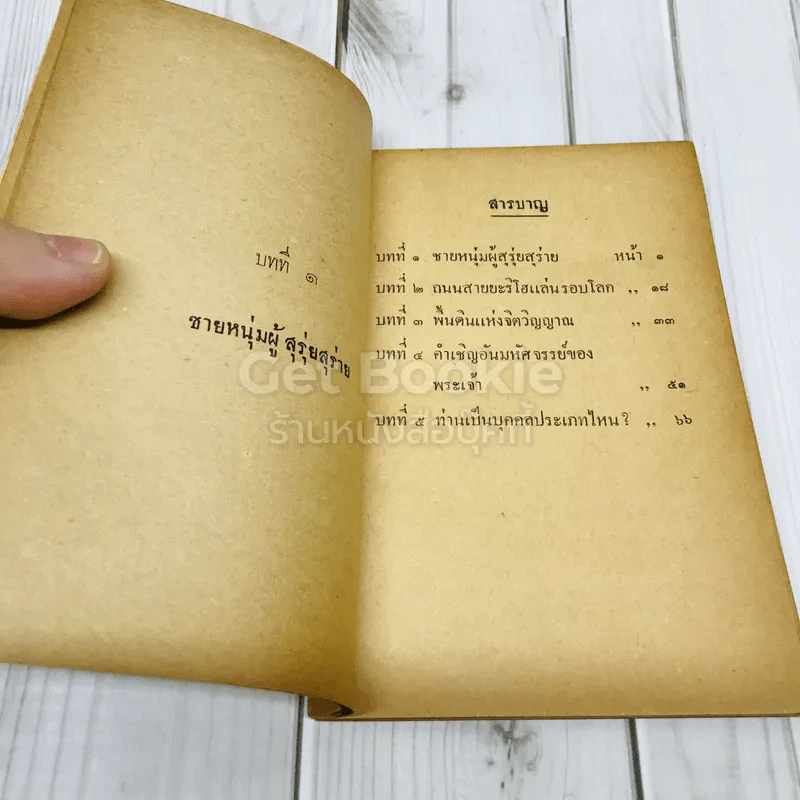 บทที่ ๑
ชายหนุ่มผู้ สุรุ่ยสุร่าย
สารบาญ
บทที่ ๑ ชายหนุ่มผู้สุรุ่ยสุร่าย หน้า ๑
บทที่ ๒ ถนนสายยะริโฮแล่นรอบโลก ,, ๑๘
บทที่ ๓ พื้นดินแห่งจิตวิญญาณ ,, ๓๓
บทที่ ๔ คำเชิญอันมหัศจรรย์ของ
พระเจ้า ,, ๕๑
บทที่ ๕ ท่านเป็นบุคคลประเภทไหน ? ,, ๖๖
Get Bookie
ร้านหนังสือบุ๊คกี้